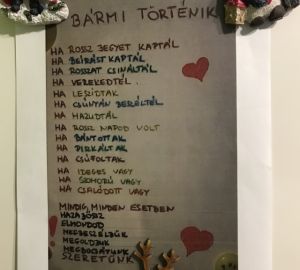 BÁRMI TÖRTÉNIK
HA ROSSZ JEGYET KAPTÁL
HA BEÍRÁST KAPTÁL
HA ROSSZAT CSINÁLTÁL
HA VEREKEDTÉL
HA LESZIDTAK
HA CSÚNYÁN BESZÉLTÉL
HA HAZUDTÁL
HA ROSSZ NAPOD VOLT
HA BÁNTOTTAK
HA PISZKÁLTAK
HA CSÚFOLTAK
HA IDEGES VAGY
HA SZOMORÚ VAGY
HA CSALÓDOTT VAGY
MINDIG, MINDEN ESETBEN
HAZAJÖSSZ
ELMONDOD
MEGBESZÉLJÜK
MEGOLDJUK
MEGBOCSÁTUNK
SZERETÜNK